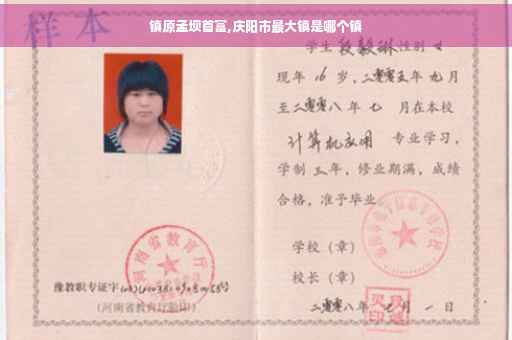 镇原孟坝首富,庆阳市最大镇是哪个镇
样本
学生 段毅琳 性别 女
现年 16 岁,二零零五年 九 月
至二零零八年 七 月在本校
计算机应用 专业学习,
学制 三 年,修业期满,成绩
合格,准予毕业
学校(章)
校长(章)
二零零八年 月 一 日
河南省教育厅
豫教职专证字
(河南省教育厅验印)